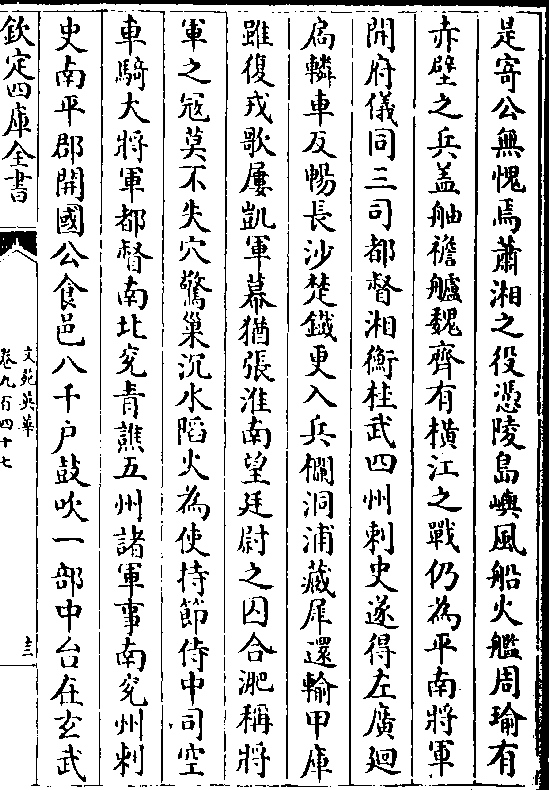 是寄公無愧焉蕭湘之役憑陵島嶼風船火艦周瑜有
赤壁之兵蓋舳襜艫魏齊有橫江之戰仍為平南將軍
開府儀同三司都督湘衡桂武四州刺史遂得左廣廻
扄轔車反暢長沙楚鐵更入兵欄洞浦藏犀還輸甲庫
雖復戎歌屢凱軍幕猶張淮南望廷尉之囚合淝稱將
軍之冦莫不失穴驚巢沉水陷火為使持節侍中司空
車騎大將軍都督南北兖青譙五州諸軍事南兖州刺
史南平郡開國公食邑八千户鼓吹一部中台在玄武
欽定四庫全書
文苑英華
卷九百四十七